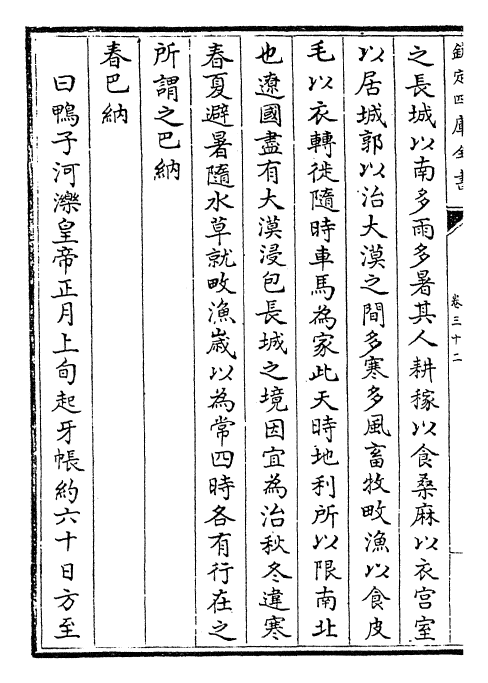 欽定四庫全書
卷三十二
之長城以南多雨多暑其人耕稼以食桑麻以衣宫室
以居城郭以治大漠之間多寒多風畜牧畋漁以食皮
毛以衣轉徙隨時車馬為家此天時地利所以限南北
也遼國盡有大漠浸包長城之境因宜為治秋冬違寒
春夏避暑隨水草就畋漁歳以為常四時各有行在之
所謂之巴納
春巴納
曰鴨子河濼皇帝正月上旬起牙帳約六十日方至